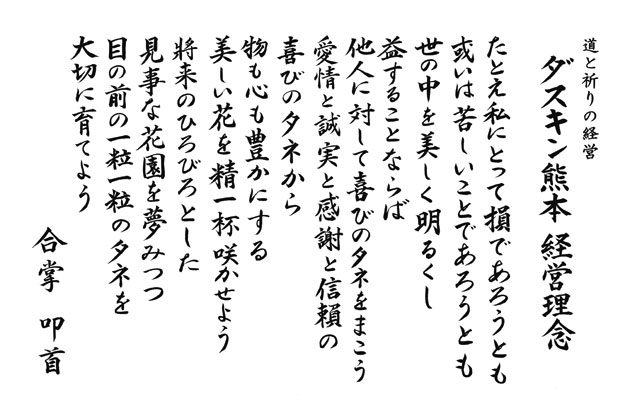 道と祈りの経営
ダスキン熊本 経営理念
たとえ私にとって損であろうとも
或いは苦しいことであろうとも
世の中を美しく明るくし
益することならば
他人に対して喜びのタネをまこう
愛情と誠実と感謝と信頼の
喜びのタネから
物も心も豊かにする
美しい花を精一杯咲かせよう
将来のひろびろとした
見事な花園を夢みつつ
目の前の一粒一粒のタネを
大切に育てよう
合掌 叩首